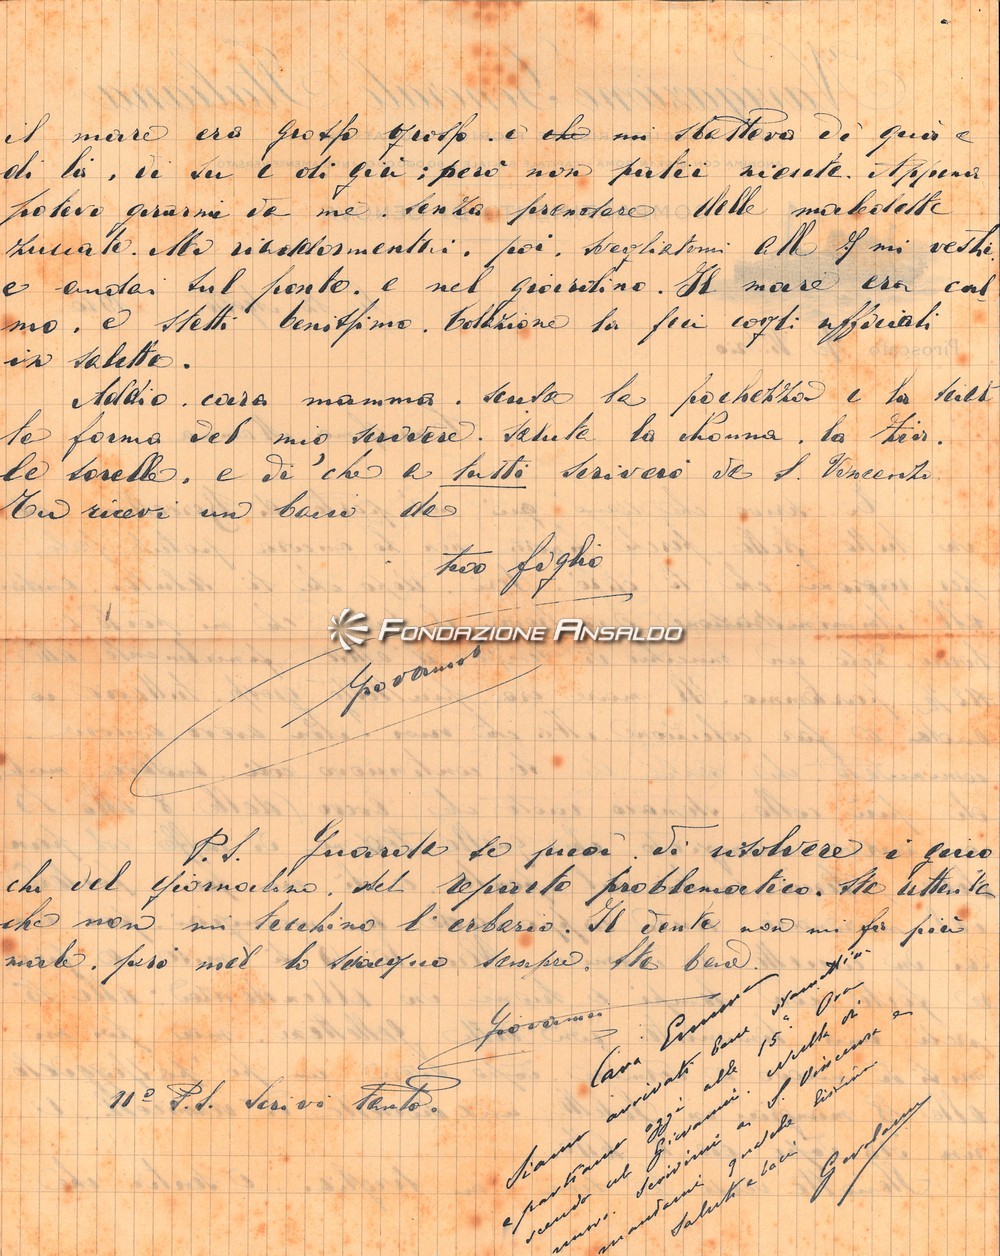 il mare era grosso grosso. e che mi sbatteva di qua e
di là, di su e di giù; però non patii niente. Appena
potevo girarmi da me. senza prendere delle maledette
zuccate. Mi riaddormentai, poi, svegliatomi alle 7 mi vestii,
e andai sul ponte. e nel giardino. Il mare era cal
mo. e stetti benissimo. Colazione la feci cogli ufficiali
in saletta.
Addio. cara mamma. scusa la pochezza e la
forma del mio scrivere. Saluta la Nonna. la zia.
le sorelle. e di' che a tutti scriverò da S. Vincenzo.
Tu ricevi un bacio da
tuo figlio
Giovanni
FONDAZIONE ANSALDO
P.S. Guarda se puoi. di risolvere i giuo
chi del giornalino. del reparto problematico. Sta attenta
che non mi tocchino l'erbario. Il dente non mi fa più
male. però me lo sciacquo sempre. Sta bene.
Giovanni
11° P.S. Scrivi tanto.
Cara Emma
Siamo arrivati bene
e partiamo oggi alle 15ª Ora
Giovanni. Nulla di
nuovo. Scrivimi a S. Vincenzo e
mandami qualche
Saluti e baci
Gerolamo